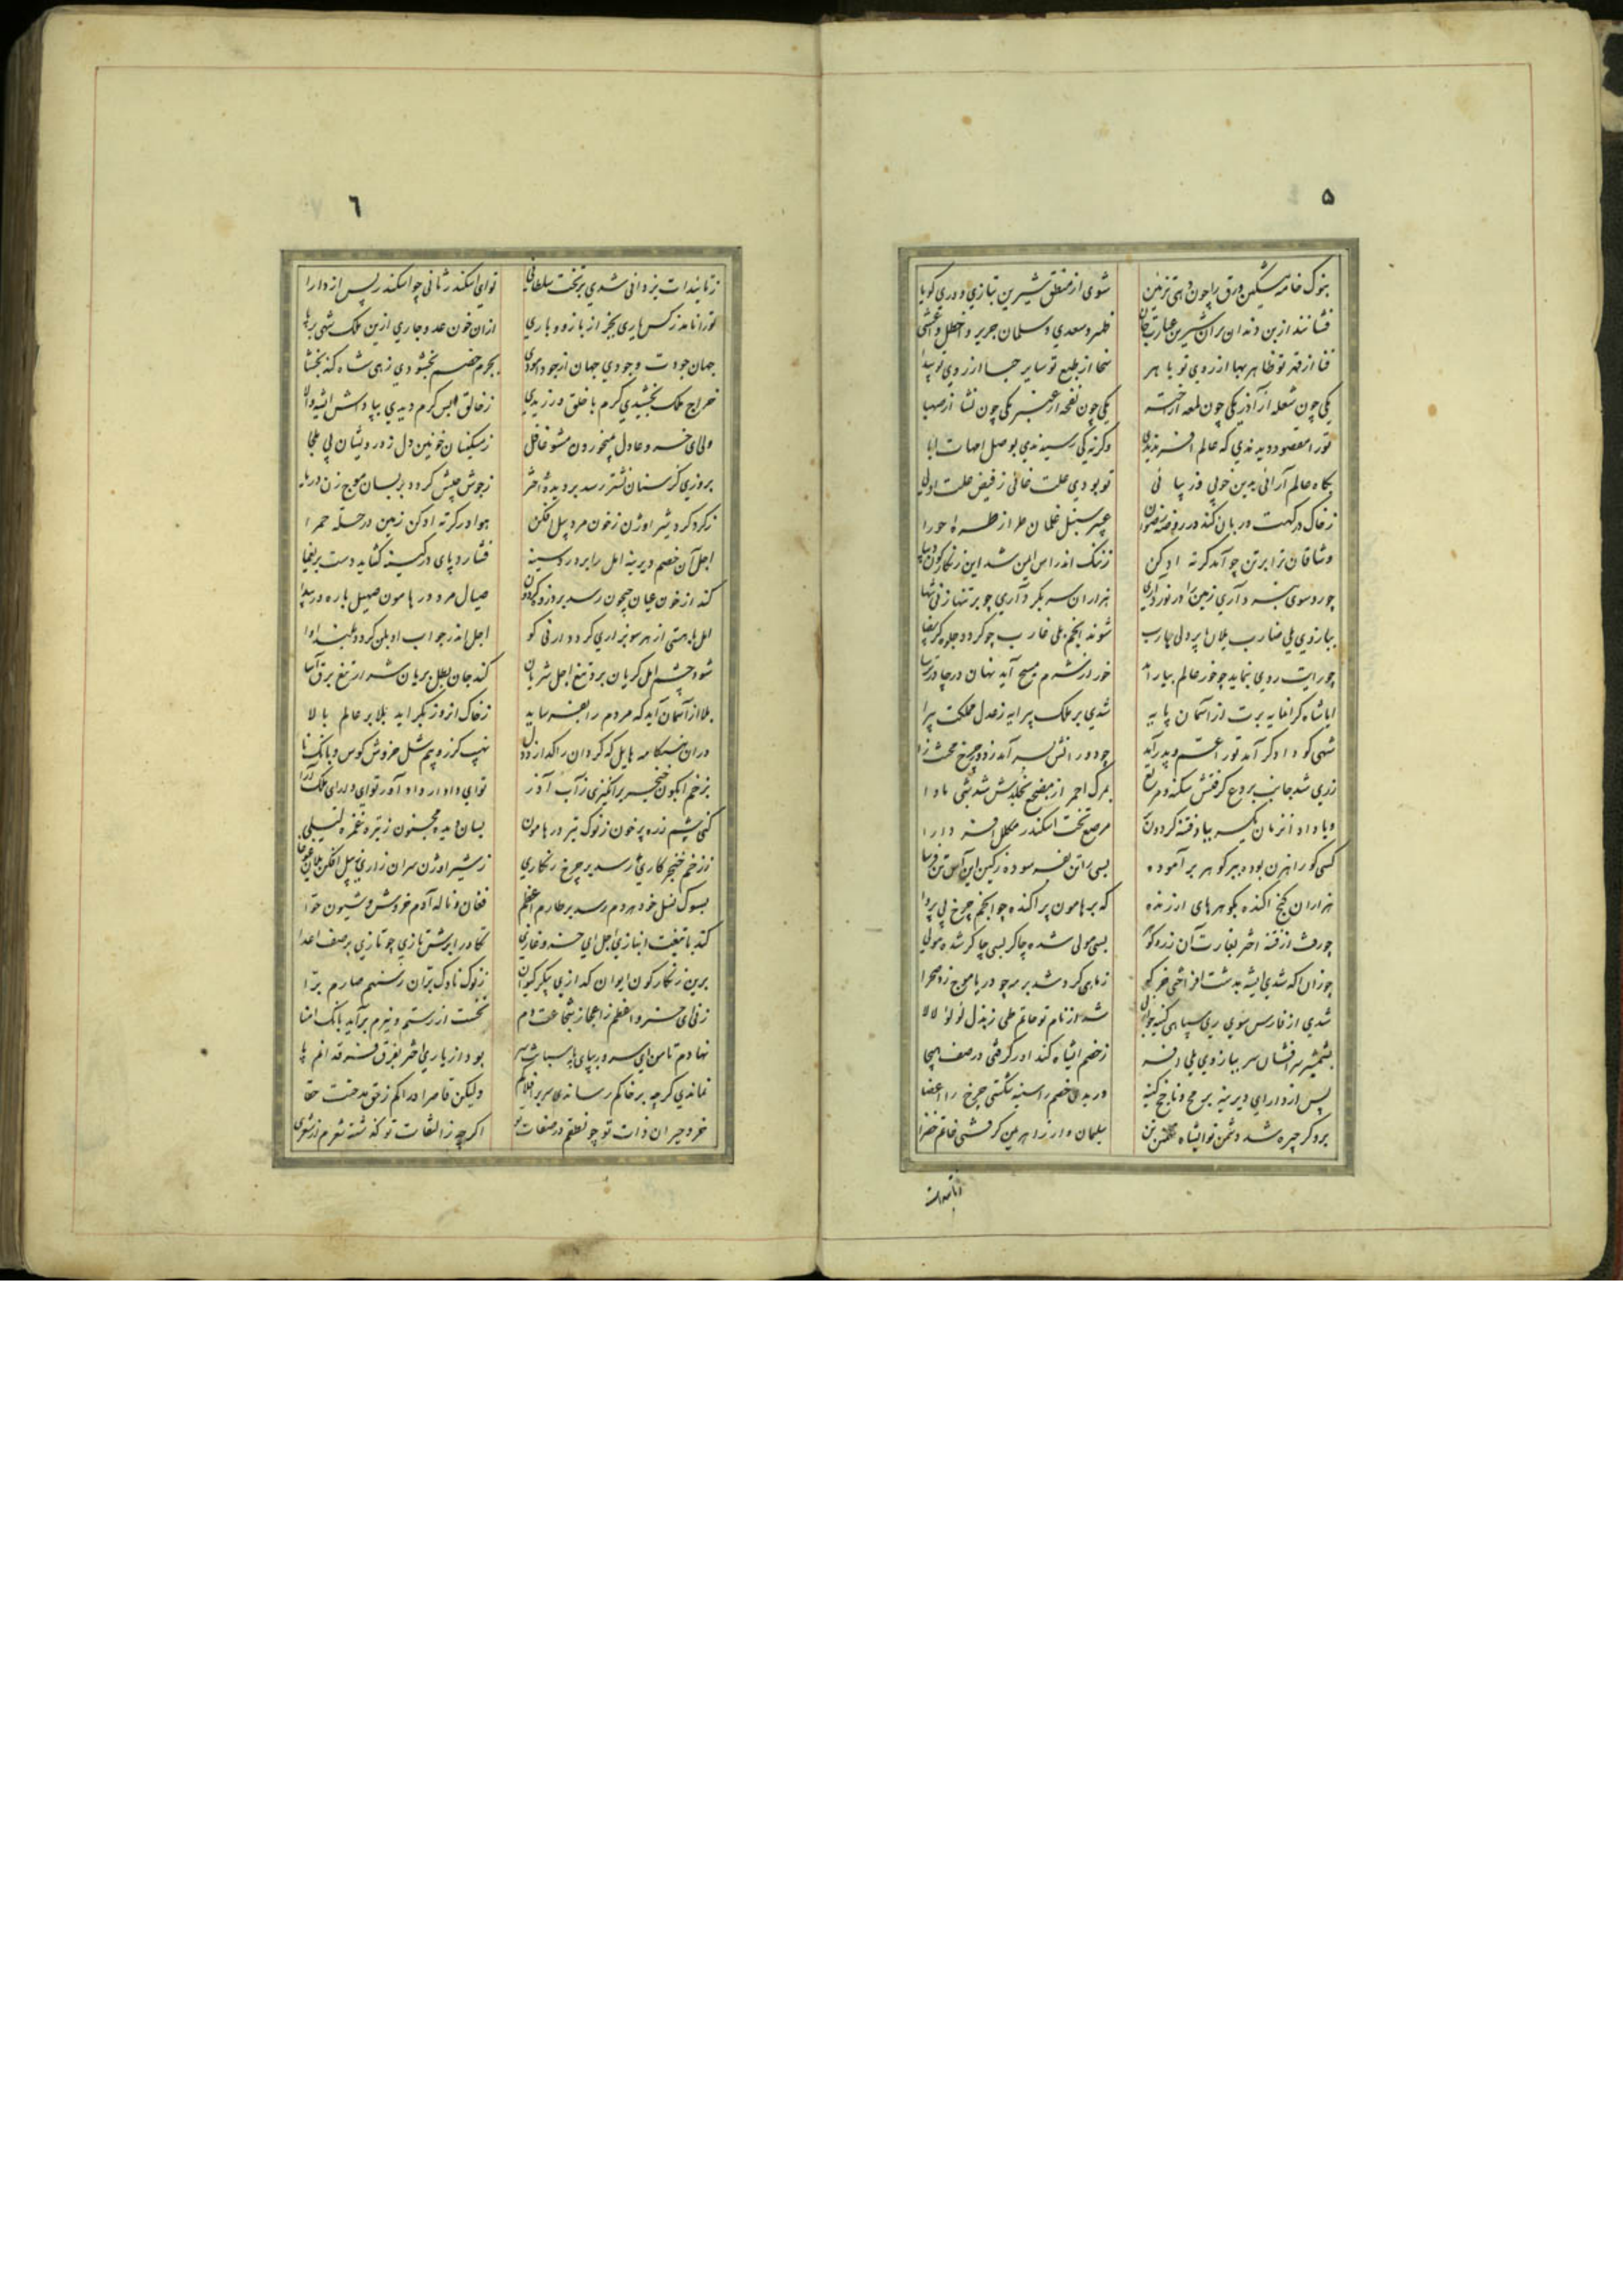 ۵
بنوک خامه مشکین ورق را چون دهی تزئین شوی از منطق شیرین بتازی و دری کویا
فشانند از بن دندان بران شیرین عبارت جان ظهیر و سعدی و سلمان جریر و اخطل و اعشی
فنا از قهر تو ظاهر بها از روی تو باهر سخا از طبع تو سایر حیا از روی تو پیدا
یکی چون شعله از آذر یکی چون لمعه از اختر یکی چون نفحه از عنبر یکی چون نشأ از صهبا
تورا مقصود دیدندی که عالم آفریدندی وکرنه کی رسیدندی بوصل امهات ابا
بکاه عالم آرائی بدین خوبی و زیبائی تو بودی علت غائی ز فیض علت اولی
ز خاک درکهت دربان کند در روضه رضوان عبیر سنبل غلمان طراز طره حورا
وشاقان ترا بر تن چو آمد کرته ادکن
چو رو سوی نبرد آری زمین را در نورد آری هزاران سر بکرد آری چو بر تنها زنی تنها
ببازوی یلی ضارب یلان پر دلی هارب شوند انجم ملی غارب چو کردد جلوه کر بیضا
چو رایت روی بنماید چو خور عالم بیاراید خور از شرم مسیح آید نهان در چادر ترسا
ایا شاه کرانمایه برت از آسمان پایه شدی بر ملک پیرایه ز عدل مملکت پیرا
شهی کو دادکر آمد تورا عم و پدر آمد چو دور آتش بسر آمد ز دور چرخ محنت زا
ز ری شد جانب بردع کرفتش سکنه و مربع بمرک احمر از مضجع بخلدبرینش شد مأوا
مرصع تخت اسکندر مکلل افسر دارا
کسی کو راهزن بوده ببر کوهر بر آموده بسی را تن بفرسوده
هزاران کنج آکنده بکوهرهای ارزنده که بر هامون پراکنده چو انجم چرخ بی پروا
چو رفت از فتنه اختر بغارت آن زر و کوهر بسی مولی شده چاکر بسی چاکر شده مولی
چو زان آکه شدی ایشه بدشت افراختی خرکه ز ماهی کرد شد بر مه چو دریا موج زد صحرا
شدی از فارس سوی ری سپاهی کنیه جو از پی شد از نام تو حاتم طی ز بذل لؤلؤ لالا
بشمشیر سر افشان سر ببازوی یلی افسر ز خصم ایشاه کند اور کرفتی در صف هیجا
پس از دارای دیرینه برمح و ناچخ کینه دریدی خصم را سینه شکستی چرخ را اعضا
برو کر چیره شد دشمن تو ایشاه تهمتن تن سلیمان وار از اهریمن کرفتی خاتم خضرا
۶
ز تائیدات یزدانی شدی بر تخت سلطانی تو ای اسکندر ثانی چو اسکندر پس از دارا
تورا نامد ز کس یاری بجز از بازو و باری ازان خون عدو جاری ازین ملک شهی برپا
جهان جودت و جودی جهان از جود اموودی بجرم خصم بخشودی زهی شاه کنه بخشا
خراج ملک بخشیدی کرم با خلق ورزیدی ز خالق بس کرم دیدی بپاداش ایشه والا
ولی ای خسرو عادل میخور دون مشو غافل ز مسکینان خونین دل ز درویشان بی ملجا
بروزی کز سنان نشتر رسد بر دیده اختر ز جوش جیش کردد بر بسان موج زن دریا
ز کرد کرد شیر اوژن ز خون مرد پیل افکن هوا در کرته ادکن زمین در حله حمرا
اجل آن خصم دیرینه امل را بر درد سینه فشارد پای در کینه کشاید دست بر یغما
کند از خون عیان جیحون رسد بر دزد کردون صیال مرد در هامون صهیل باره در بیدا
امل با هستی از هر سو بزاری کردد ارنی کو اجل اندر جواب او بلن کردد بلند آوا
شود چشم امل کریان برد تیغ اجل شریان کند جان یلان بریان شرار تیغ برق آسا
بلا از آسمان آید که مردم را بفرساید ز خاک ان روز بکراید بلا بر عالم بالا
دران هنکامه هایل که کردان را کدازد دل نهیب کرز و بیم شل خروش کوس و بانک نا
بزخم آبکون خنجر بر انکیزی ز آب آذر تو ای دادار داد آور تو ای دارای ملک آرا
کنی چشم زره پر خون ز نوک تیر در هامون بسان دیده مجنون ز تیر غمزه لیلی
ز زخم خنجر کاری رسد بر چرخ زنکاری ز شیر اوژن سران زاری ز پیل افکن یلان غوغا
بسوک نسل خود هردم رسد بر طارم اعظم فغان و ناله آدم خروش و شیون حوا
کند با تیغت انبازی اجل ای خسرو غازی تکاور ابرش تازی چو تازی بر صف اعدا
برین زنکارکون ایوان کدازی پیکر کیوان ز نوک ناوک بران ز سهم صارم برا
زنی ای خسرو اعظم ز اعجاز شجاعت دم نخست از رستم و نیرم برآید بانک امنا
نهادم تا من ای سرور بپای بارسایت سر بود از یاری اختر بفرق فرقدانم پا
نماندی کرچه بر خاکم رساندی سر بر افلاکم ولیکن قاصر ادراکم ز حق مدحتت حقا
خرد حیران ذات تو چو نطقم در صفات تو اکرچه ز التفات تو کذشته شعرم از شعری